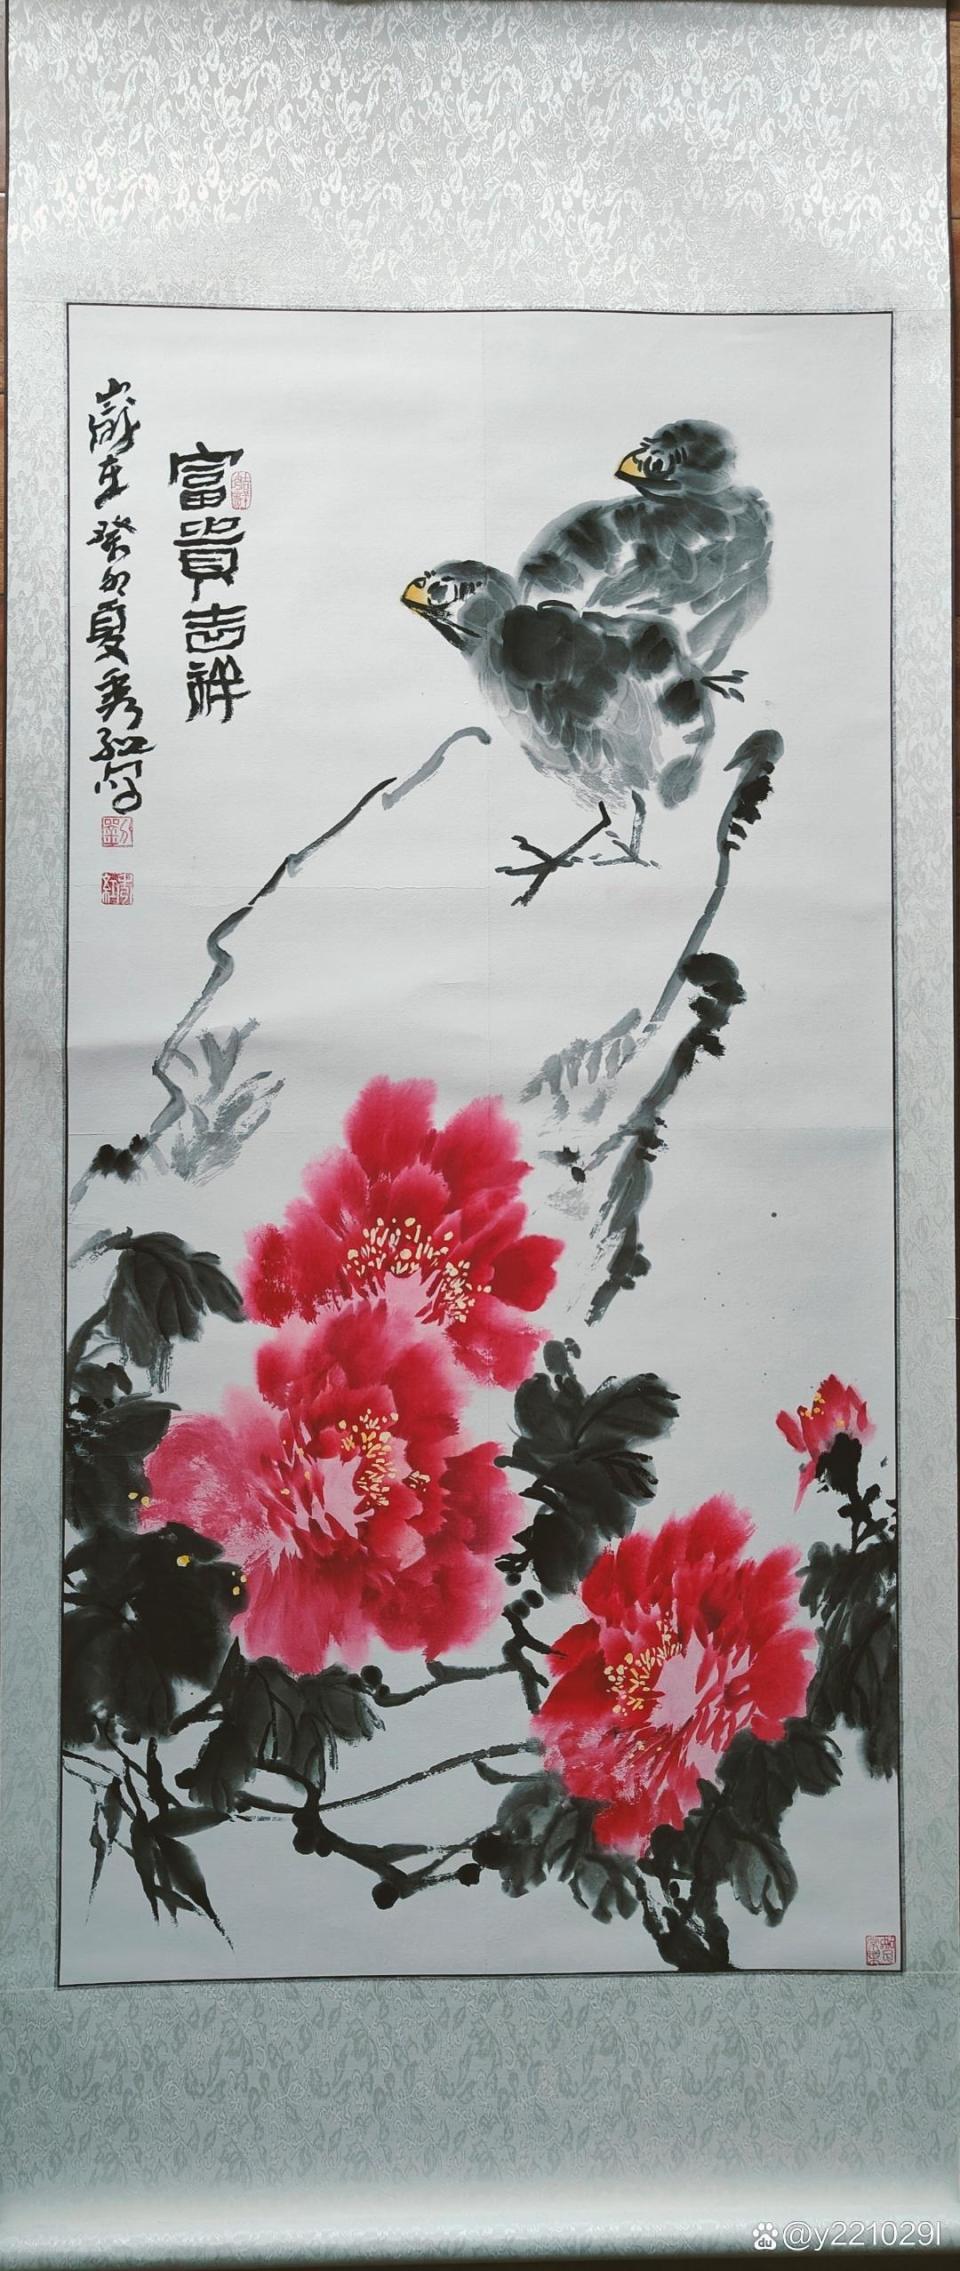 富貴吉祥
歲在癸卯夏秀紅寫
@y221029l